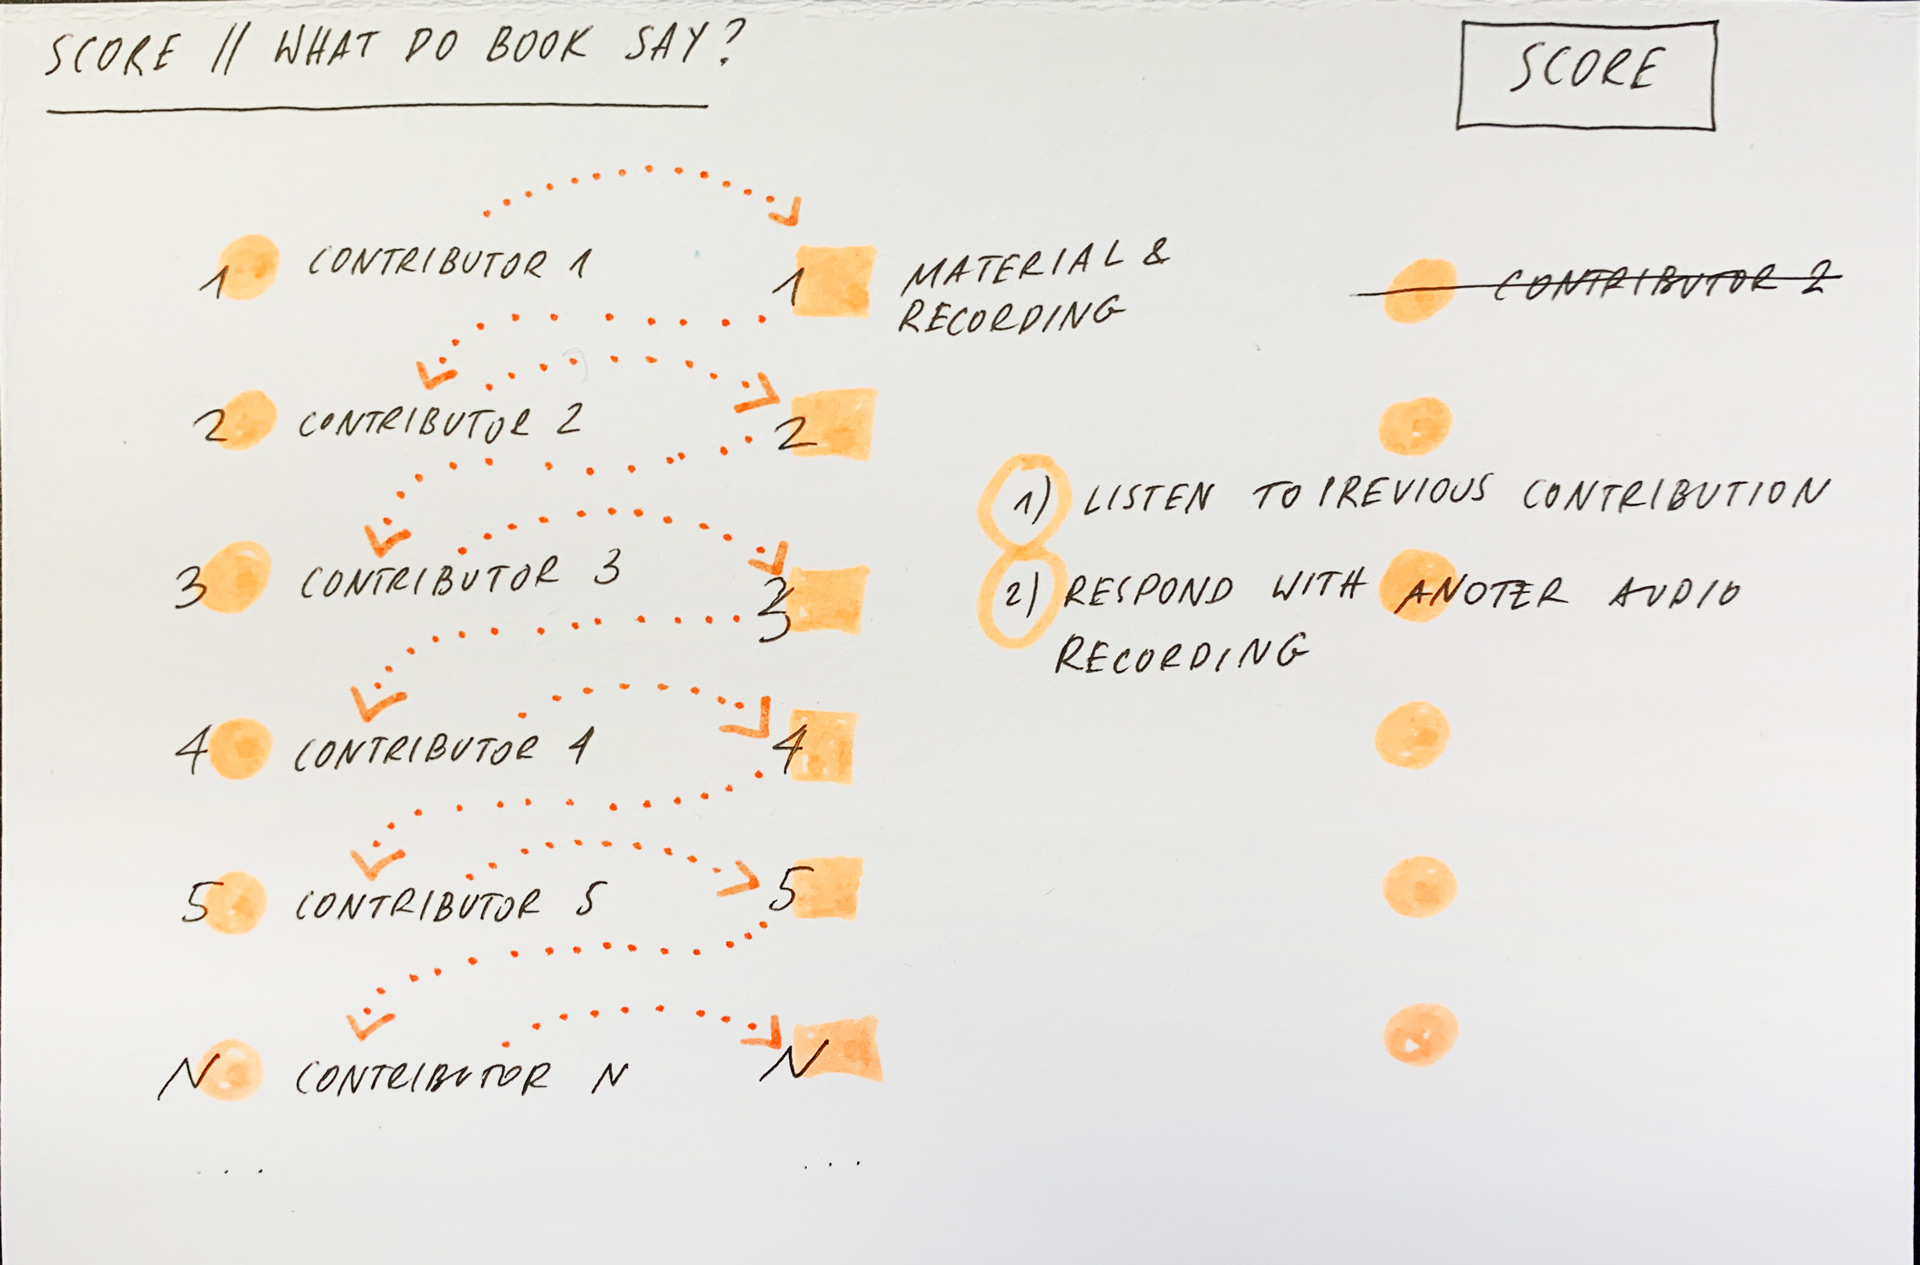 SCORE // WHAT DO BOOK SAY?
SCORE
1 CONTRIBUTOR 1
1 MATERIAL &
RECORDING
CONTRIBUTOR 2
2 CONTRIBUTOR 2
2
1) LISTEN TO PREVIOUS CONTRIBUTION
3 CONTRIBUTOR 3
3
2) RESPOND WITH ANOTER AUDIO
RECORDING
4 CONTRIBUTOR 4
4
5 CONTRIBUTOR 5
5
N CONTRIBUTOR N
N
...
...